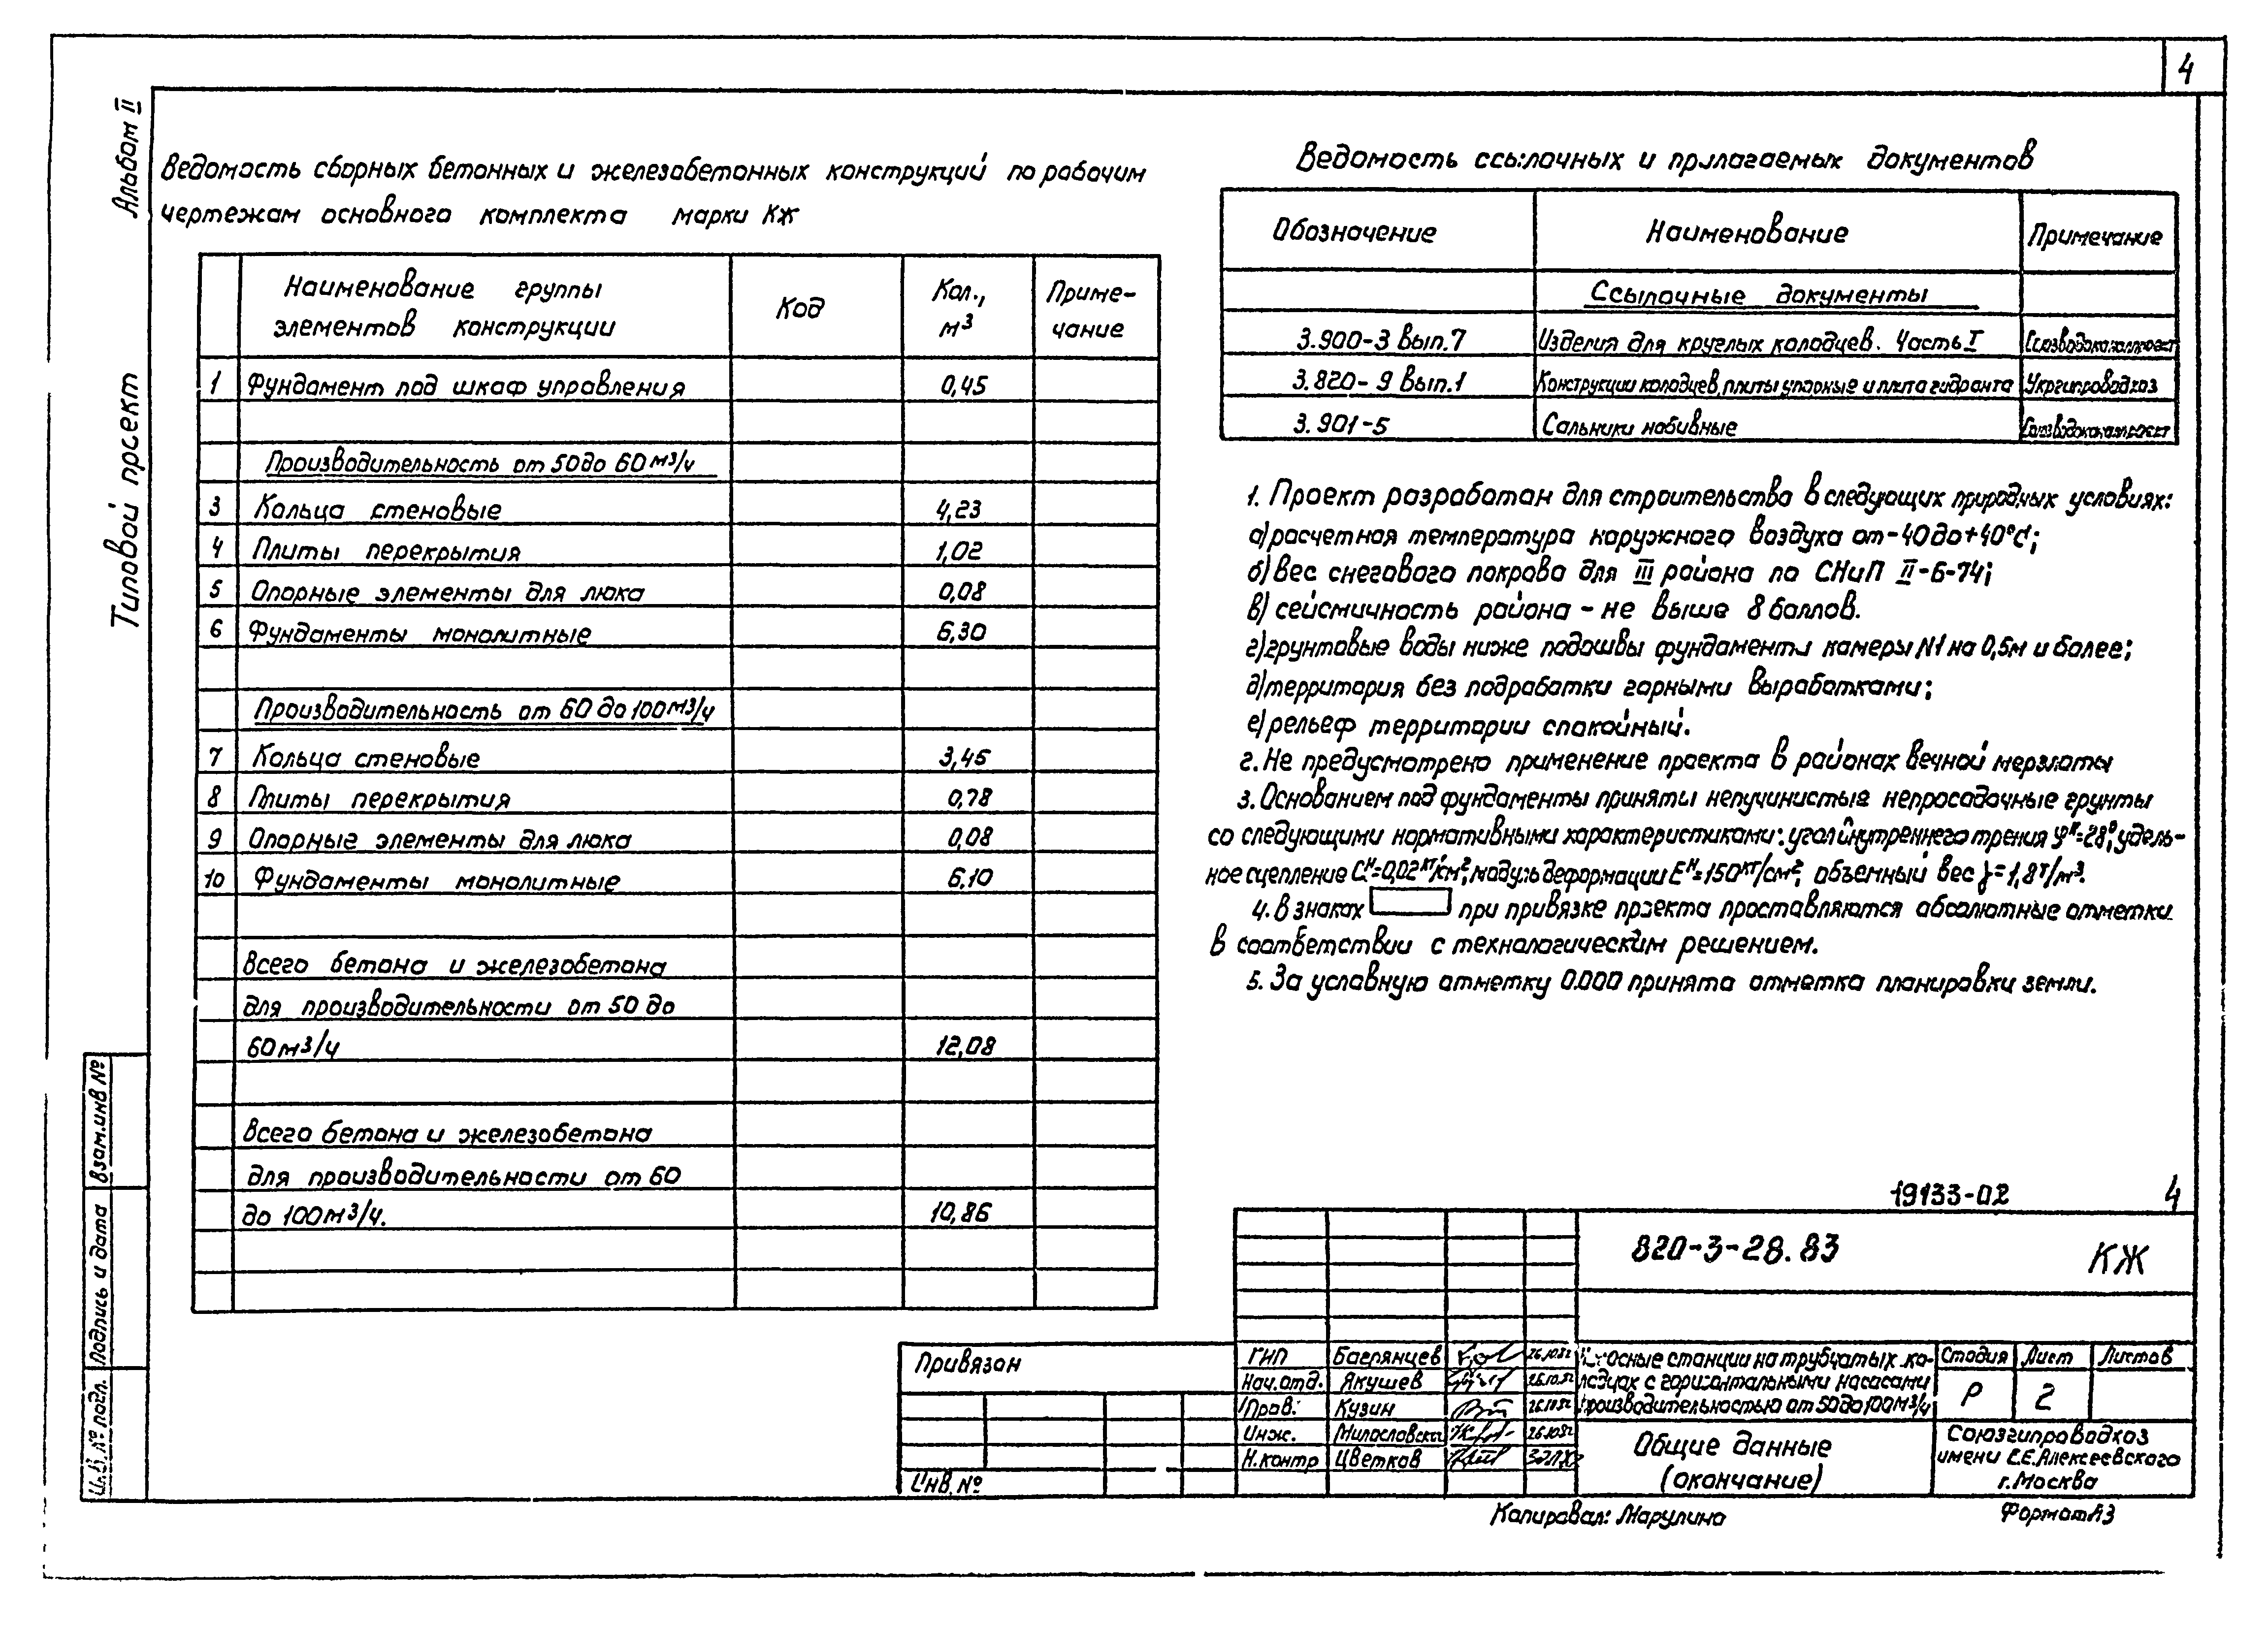 4
Альбом II
Типовой проект
Ведомость сборных бетонных и железобетонных конструкций по рабочим
чертежам основного комплекта марки КЖ
Наименование группы элементов конструкции Код Кол., м³ Приме-чание
1 Фундамент под шкаф управления 0,45
Производительность от 50 до 60 м³/ч
3 Кольца стеновые 4,23
4 Плиты перекрытия 1,02
5 Опорные элементы для люка 0,08
6 Фундаменты монолитные 6,30
Производительность от 60 до 100 м³/ч
7 Кольца стеновые 3,45
8 Плиты перекрытия 0,78
9 Опорные элементы для люка 0,08
10 Фундаменты монолитные 6,10
Всего бетона и железобетона
для производительности от 50 до
60 м³/ч 12,08
Всего бетона и железобетона
для производительности от 60
до 100 м³/ч. 10,86
Ведомость ссылочных и прилагаемых документов
Обозначение Наименование Примечание
Ссылочные документы
3.900-3 Вып.7 Изделия для круглых колодцев. Часть I Союзводоканалпроект
3.820-9 Вып.1 Конструкции колодцев, плиты упорные и плита гидранта Укргипроводхоз
3.901-5 Сальники набивные Союзводоканалпроект
1. Проект разработан для строительства в следующих природных условиях:
а) расчетная температура наружного воздуха от -40 до +40°С;
б) вес снегового покрова для III района по СНиП II-6-74;
в) сейсмичность района - не выше 8 баллов.
г) грунтовые воды ниже подошвы фундаменты камеры N1 на 0,5м и более;
д) территория без подработки горными выработками;
е) рельеф территории спокойный.
2. Не предусмотрено применение проекта в районах вечной мерзлоты
3. Основанием под фундаменты приняты непучинистые непросадочные грунты
со следующими нормативными характеристиками: угол внутреннего трения φн=28°, удель-
ное сцепление Сн=0,02 кг/см², модуль деформации Ен=150 кг/см², объемный вес γ=1,8 т/м³.
4. В знаках при привязке проекта проставляются абсолютные отметки
в соответствии с технологическим решением.
5. За условную отметку 0.000 принята отметка планировки земли.
19133-02 4
820-3-28.83 КЖ
Привязан
Инв. №
ГИП Багрянцев 26.10.82
Нач.отд. Якушев 26.10.82
Пров. Кузин 26.10.82
Инж. Милославски 26.10.82
Н.контр Цветков
Насосные станции на трубчатых ко-
лодцах с горизонтальными насосами
производительностью от 50 до 100 м³/ч
Стадия Лист Листов
Р 2
Общие данные
(окончание)
Союзгипроводхоз
имени Е.Е.Алексеевского
г.Москва
Копировал: Марулина Формат А3
Взам.инв №
Подпись и дата
Инв. № подл.